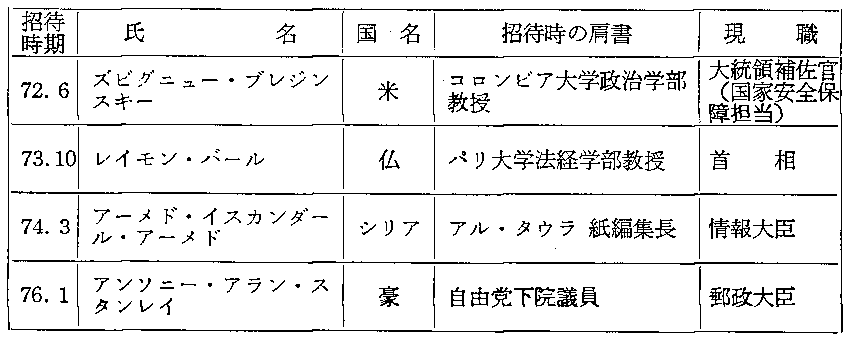 招待時期 氏 名 国 名 招待時の肩書 現 職
72. 6 ズビグニュー・ブレジンスキー 米 コロンビア大学政治学部教授 大統領補佐官(国家安全保障担当)
73. 10 レイモン・バール 仏 パリ大学法経学部教授 首 相
74. 3 アーメド・イスカンダール・アーメド シリア アル・タウラ 紙編集長 情報大臣
76. 1 アンソニー・アラン・スタンレイ 豪 自由党下院議員 郵政大臣